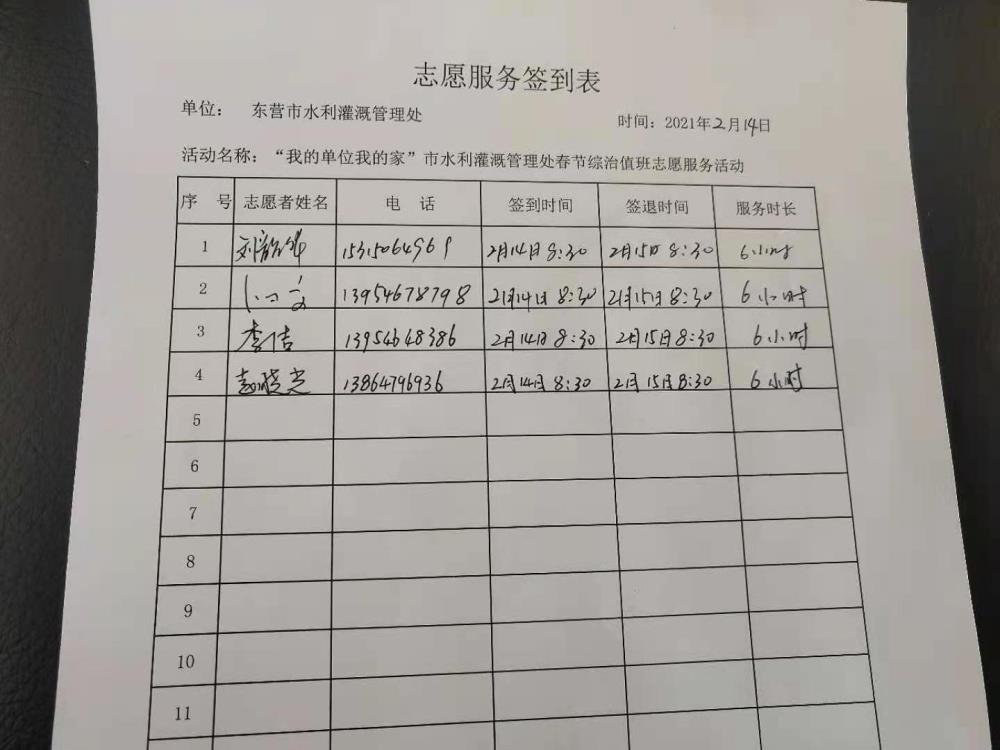 志愿服务签到表
单位： 东营市水利灌溉管理处
时间：2021年2月14日
活动名称：“我的单位我的家”市水利灌溉管理处春节综治值班志愿服务活动
序 号 志愿者姓名 电 话 签到时间 签退时间 服务时长
1 刘 15315064969 2月14日 8:30 2月15日 8:30 6小时
2 13954678798 2月14日 8:30 2月15日 8:30 6小时
3 李洁 13954648386 2月14日 8:30 2月15日 8:30 6小时
4 赵晓光 13864796936 2月14日 8:30 2月15日 8:30 6小时
5
6
7
8
9
10
11